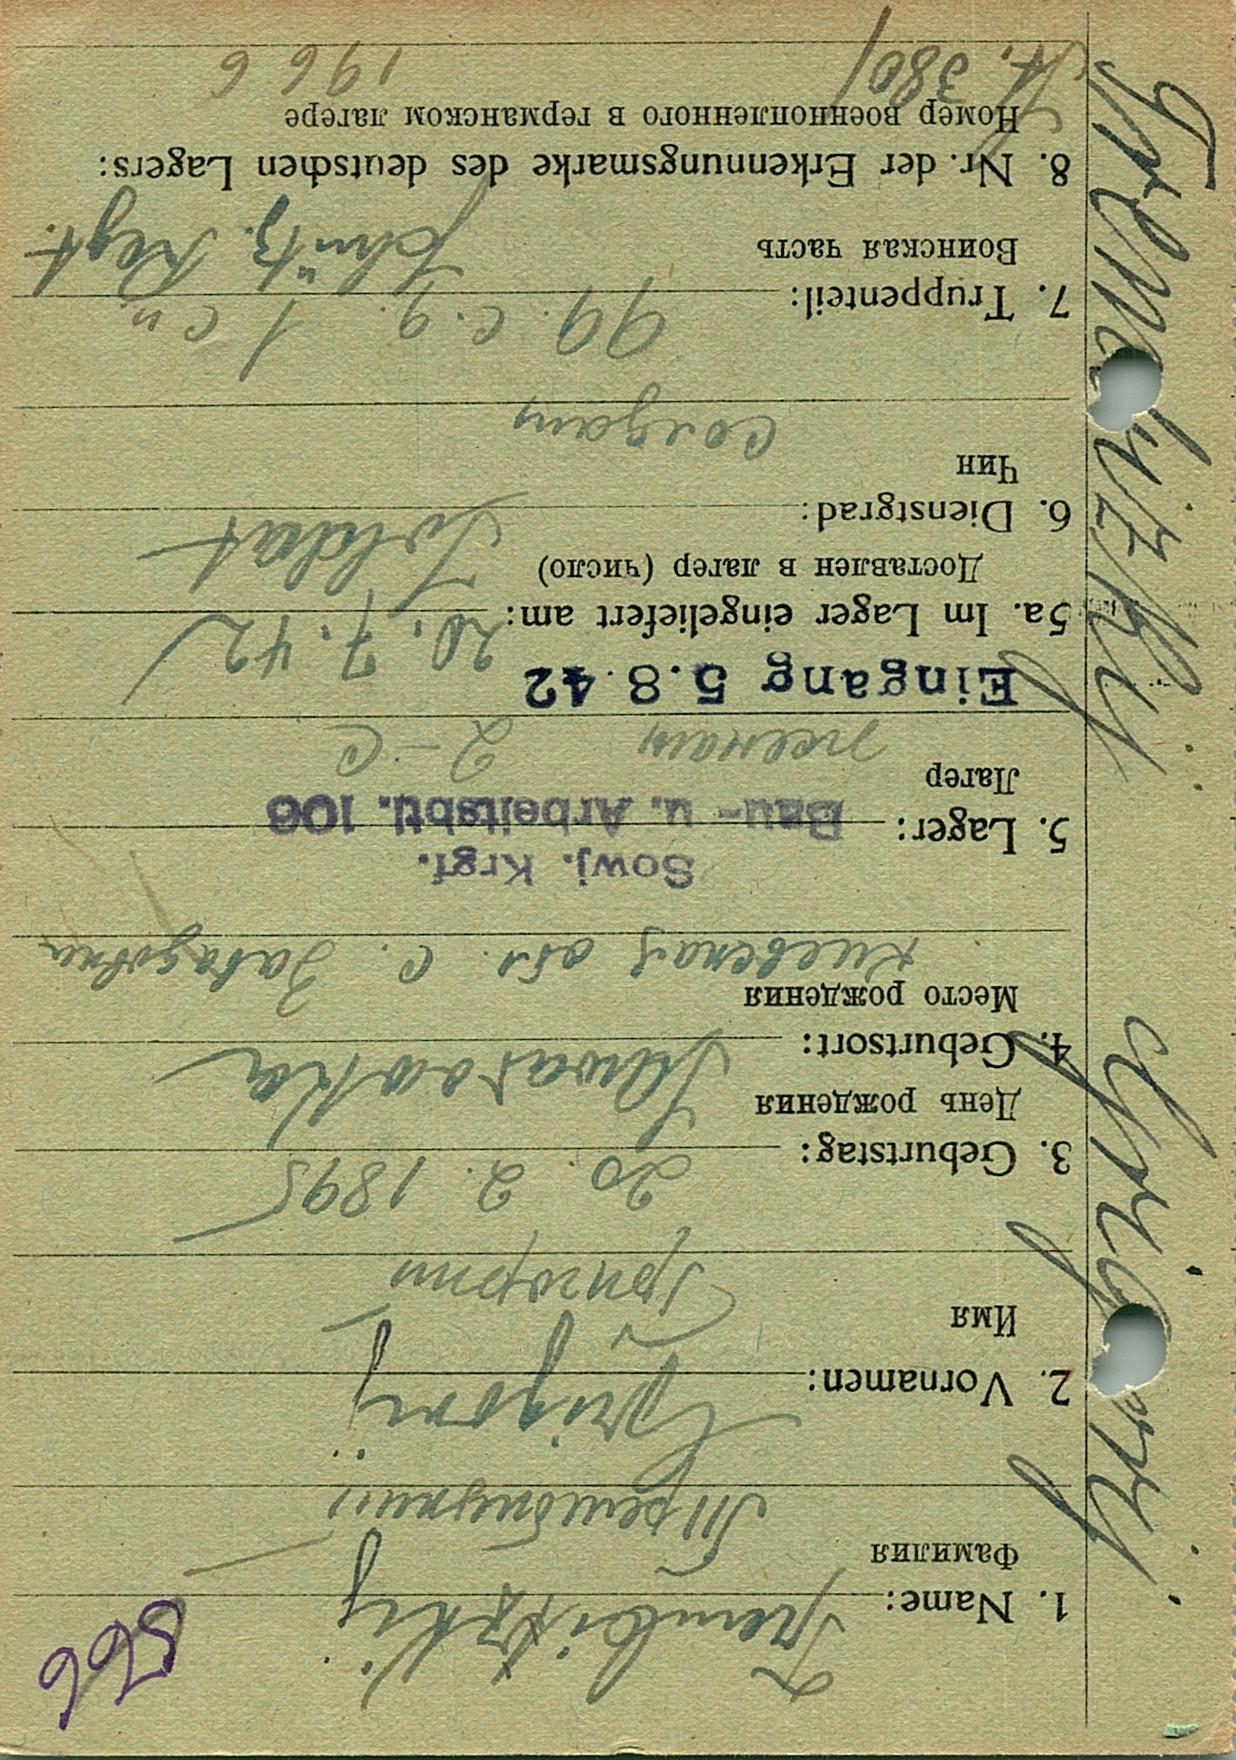 566
1. Name: Trembitzkij
Фамилия
Трембицкий
2. Vornamen: Grigorij
Имя
Григорий
3. Geburtstag: 20. 2. 1895
День рождения
4. Geburtsort: Suwarowka
Место рождения
Киевская обл. с. Завадовка
Sowj. Krgf.
5. Lager: Bau- u. Arbeitsbtl. 106
Лагер
2-С
Eingang 5.8.42
5a. Im Lager eingeliefert am: 20. 7. 42
Доставлен в лагер (число)
6. Dienstgrad: Soldat
Чин
солдат
7. Truppenteil: 99. с.д. 1 сп.
Воинская часть
Schütz. Regt.
8. Nr. der Erkennungsmarke des deutschen Lagers:
Номер военнопленного в германском лагере
St. 380/ 1966
Trembitzkij Grigorij